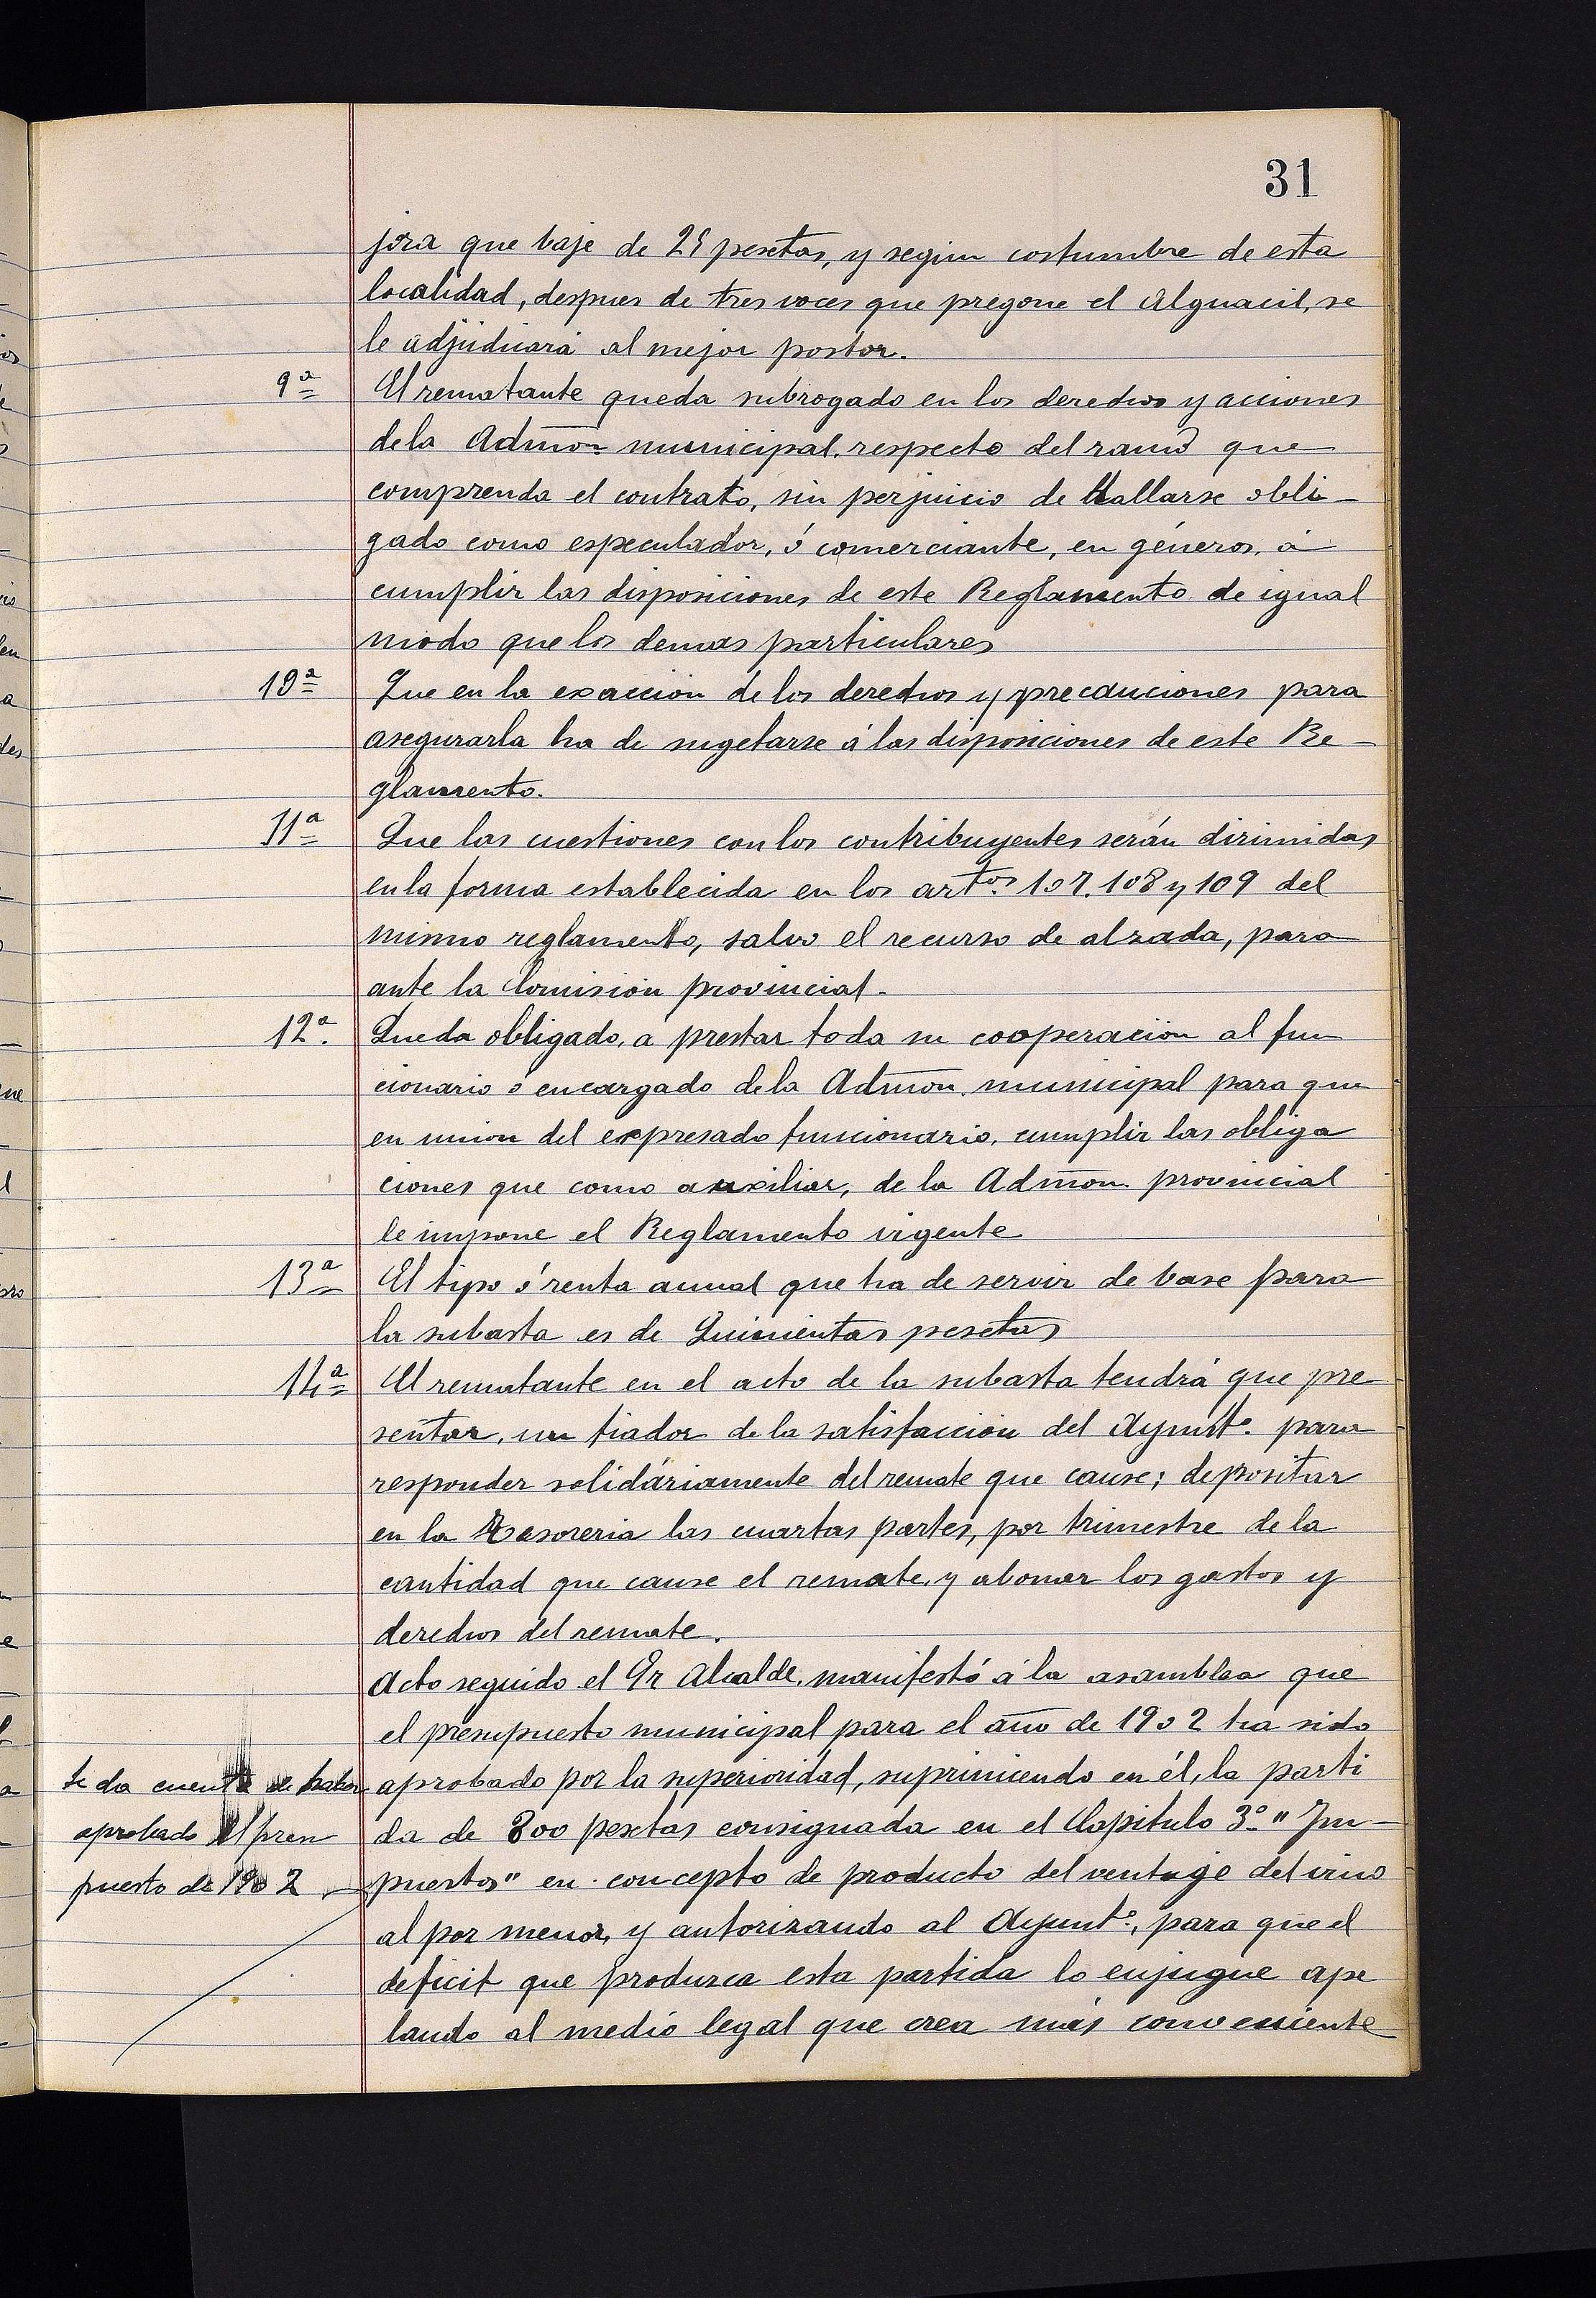 31
jora que baje de 25 pesetas, y segun costumbre de esta
localidad, despues de tres voces que pregone el Alguacil, se
le adjudicará al mejor postor.
9ª El rematante queda subrogado en los derechos y acciones
de la Admon municipal, respecto del ramo que
comprenda el contrato, sin perjuicio de hallarse obli-
gado como especulador, ó comerciante, en géneros, á
cumplir las disposiciones de este Reglamento de igual
modo que los demas particulares
10ª Que en la exaccion de los derechos y precauciones para
asegurarla ha de sugetarse á las disposiciones de este Re-
glamento.
11ª Que las cuestiones con los contribuyentes serán dirimidas
en la forma establecida en los artos. 107. 108 y 109 del
mismo reglamento, salvo el recurso de alzada, para
ante la Comisión provincial.
12ª. Queda obligado, a prestar toda su cooperación al fun
cionario ó encargado de la Admon. municipal para que
en union del expresado funcionario, cumplir las obliga
ciones que como auxiliar, de la Admon. provincial
le impone el Reglamento vigente
13ª El tipo ó renta anual que ha de servir de base para
la subasta es de Quinientas pesetas
14ª El rematante en el acto de la subasta tendrá que pre
sentar, un fiador de la satisfacción del Ayuntº. para
responder solidáriamente del remate que cause; depositar
en la Tesoreria las cuartas partes, por trimestre de la
cantidad que cause el remate, y abonar los gastos y
derechos del remate.
Acto seguido el Sr Alcalde, manifestó á la asamblea que
el presupuesto municipal para el año de 1902 ha sido
aprobado por la superioridad, suprimiendo en él, la parti
da de 800 pesetas consignada en el Capitulo 3º. "Im-
puestos" en concepto de producto del ventage del vino
al por menor, y autorizando al Ayuntº., para que el
deficit que produzca esta partida lo enjugue ape
lando al medio legal que crea más conveniente
Se da cuenta de haber
aprobado el presu
puesto de 1902